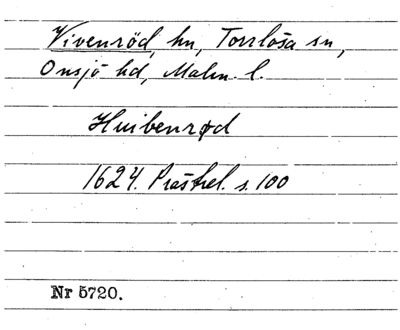 Vivenröd, hn, Torrlösa sn,
Onsjö hd, Malm. l.
Huibenrød
1624. Prästrel. s. 100
Nr 5720.